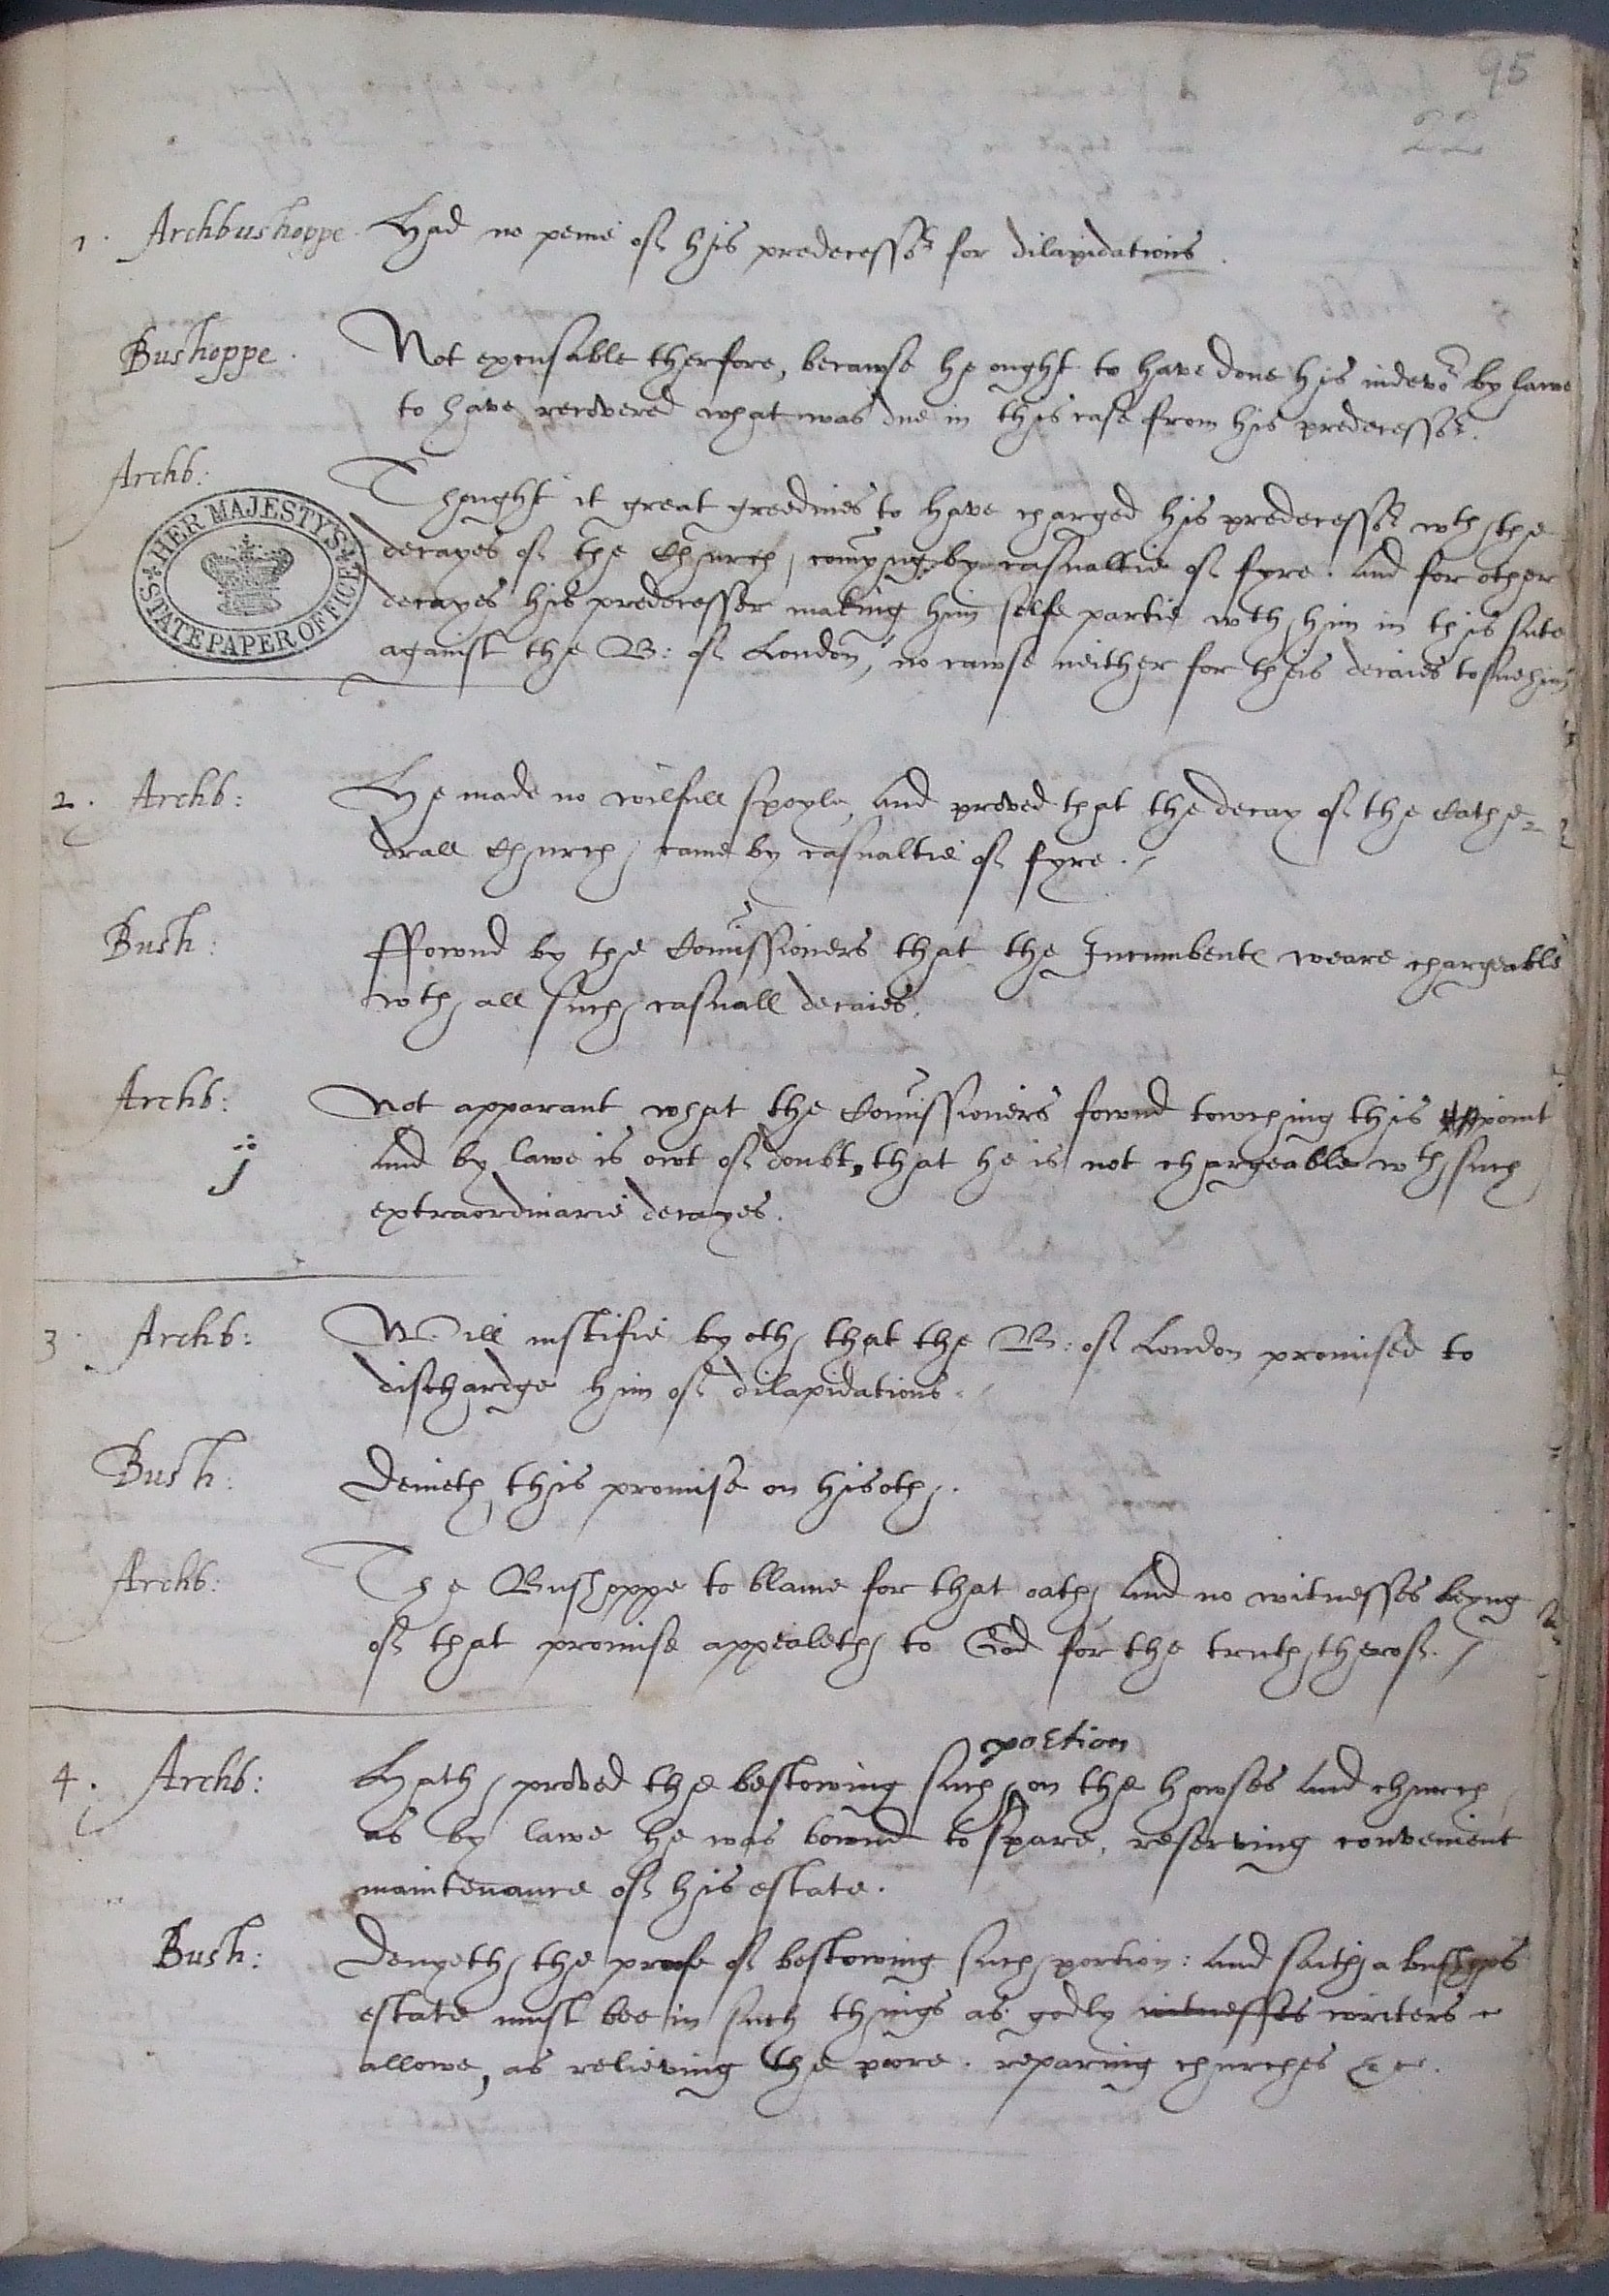 95
22
1. Archbushoppe. Had no penie of his predecessor for dilapidations.
Bushoppe. Not excusable therfore, becawse he ought to have done his indevor by lawe
to have recovered what was due in this case from his predecessor.
Archb: Thought it great greedines to have charged his predecessor wth the
HER MAJESTY'S STATE PAPER OFFICE
decayes of the Church, comyng by casualtie of fyre. And for other
decayes his predecessor making him selfe partie wth him in this sute
against the B: of London, no cawse neither for theis decaies to sue him
2. Archb: He made no wilfull spoyle, And proved that the decay of the Cathe=
drall Church, came by casualtie of fyre.
Bush: Ffownd by the Comissioners that the Incumbentes weare chargeable
wth all such casuall decaies.
Archb: Not apparant what the Comissioners fownd towching this point
j And by lawe is owt of doubt, that he is not chargeable wth such
extraordinarie decayes.
3. Archb: Will iustifie by oth that the B: of London promised to
dischardge him of dilapidations.
Bush: Denieth this promise on his oth.
Archb: The Bushoppe to blame for that oath And no witnesses beyng
of that promise appealeth to God for the truth therof.
portion
4. Archb: Hath proved the bestowing such on the howses And church
as by lawe he was bownd to spare, reserving convenient
maintenance of his estate.
Bush: Denyeth the profe of bestowing such portion: And saith a bushops
estate must bee in such things as godly witnesses writers
allowe, as relieving the pore. reparing churches &c.